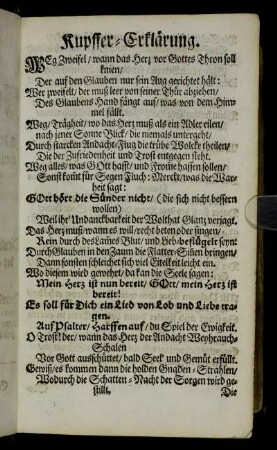 Kupffer-Erklärung.
WEg Zweifel / wann das Herz vor Gottes Thron soll
knien /
Der auf den Glauben nur sein Aug gerichtet hält:
Wer zweifelt, der muß leer von seiner Thür abziehen /
Des Glaubens Hand fängt auf / was von dem Him-
mel fällt.
Weg / Trägheit / wo das Herz muß als ein Adler eilen /
nach jener Sonne Blick / die niemals untergeht /
Durch starcken Andacht-Flug die trübe Wolcke theilen /
Die der Zufriedenheit und Trost entgegen steht.
Weg alles / was GOtt hasst / und Fromme hassen sollen /
Sonst komt für Segen Fluch: Merckt / was die War-
heit sagt:
GOtt hört die Sünder nicht / (die sich nicht bessern
wollen)
Weil ihr Undanckbarkeit der Wolthat Glanz verjagt.
Das Herz muß / wann es will / recht beten oder singen /
Rein durch des Lames Blut / und Lieb-beflügelt seyn:
Durch Glauben in den Zaum die Flatter-Sinen bringen /
Dann sonsten schleichet sich viel Eitelkeit leicht ein.
Wo diesem wird gewehrt / da kan die Seele sagen:
Mein Herz ist nun bereit / GOtt / mein Herz ist
bereit!
Es soll für Dich ein Lied von Lob und Liebe tra-
gen.
Auf Psalter / Harffen auf / du Spiel der Ewigkeit.
O Trost! der / wann das Herz der Andacht Weyhrauch-
Schalen
Vor Gott ausschüttet / bald Seel' und Gemüt erfüllt.
Gewiß / es kommen dann die holden Gnaden-Strahlen /
Wodurch die Schatten-Nacht der Sorgen wird ge-
stillt.
Die